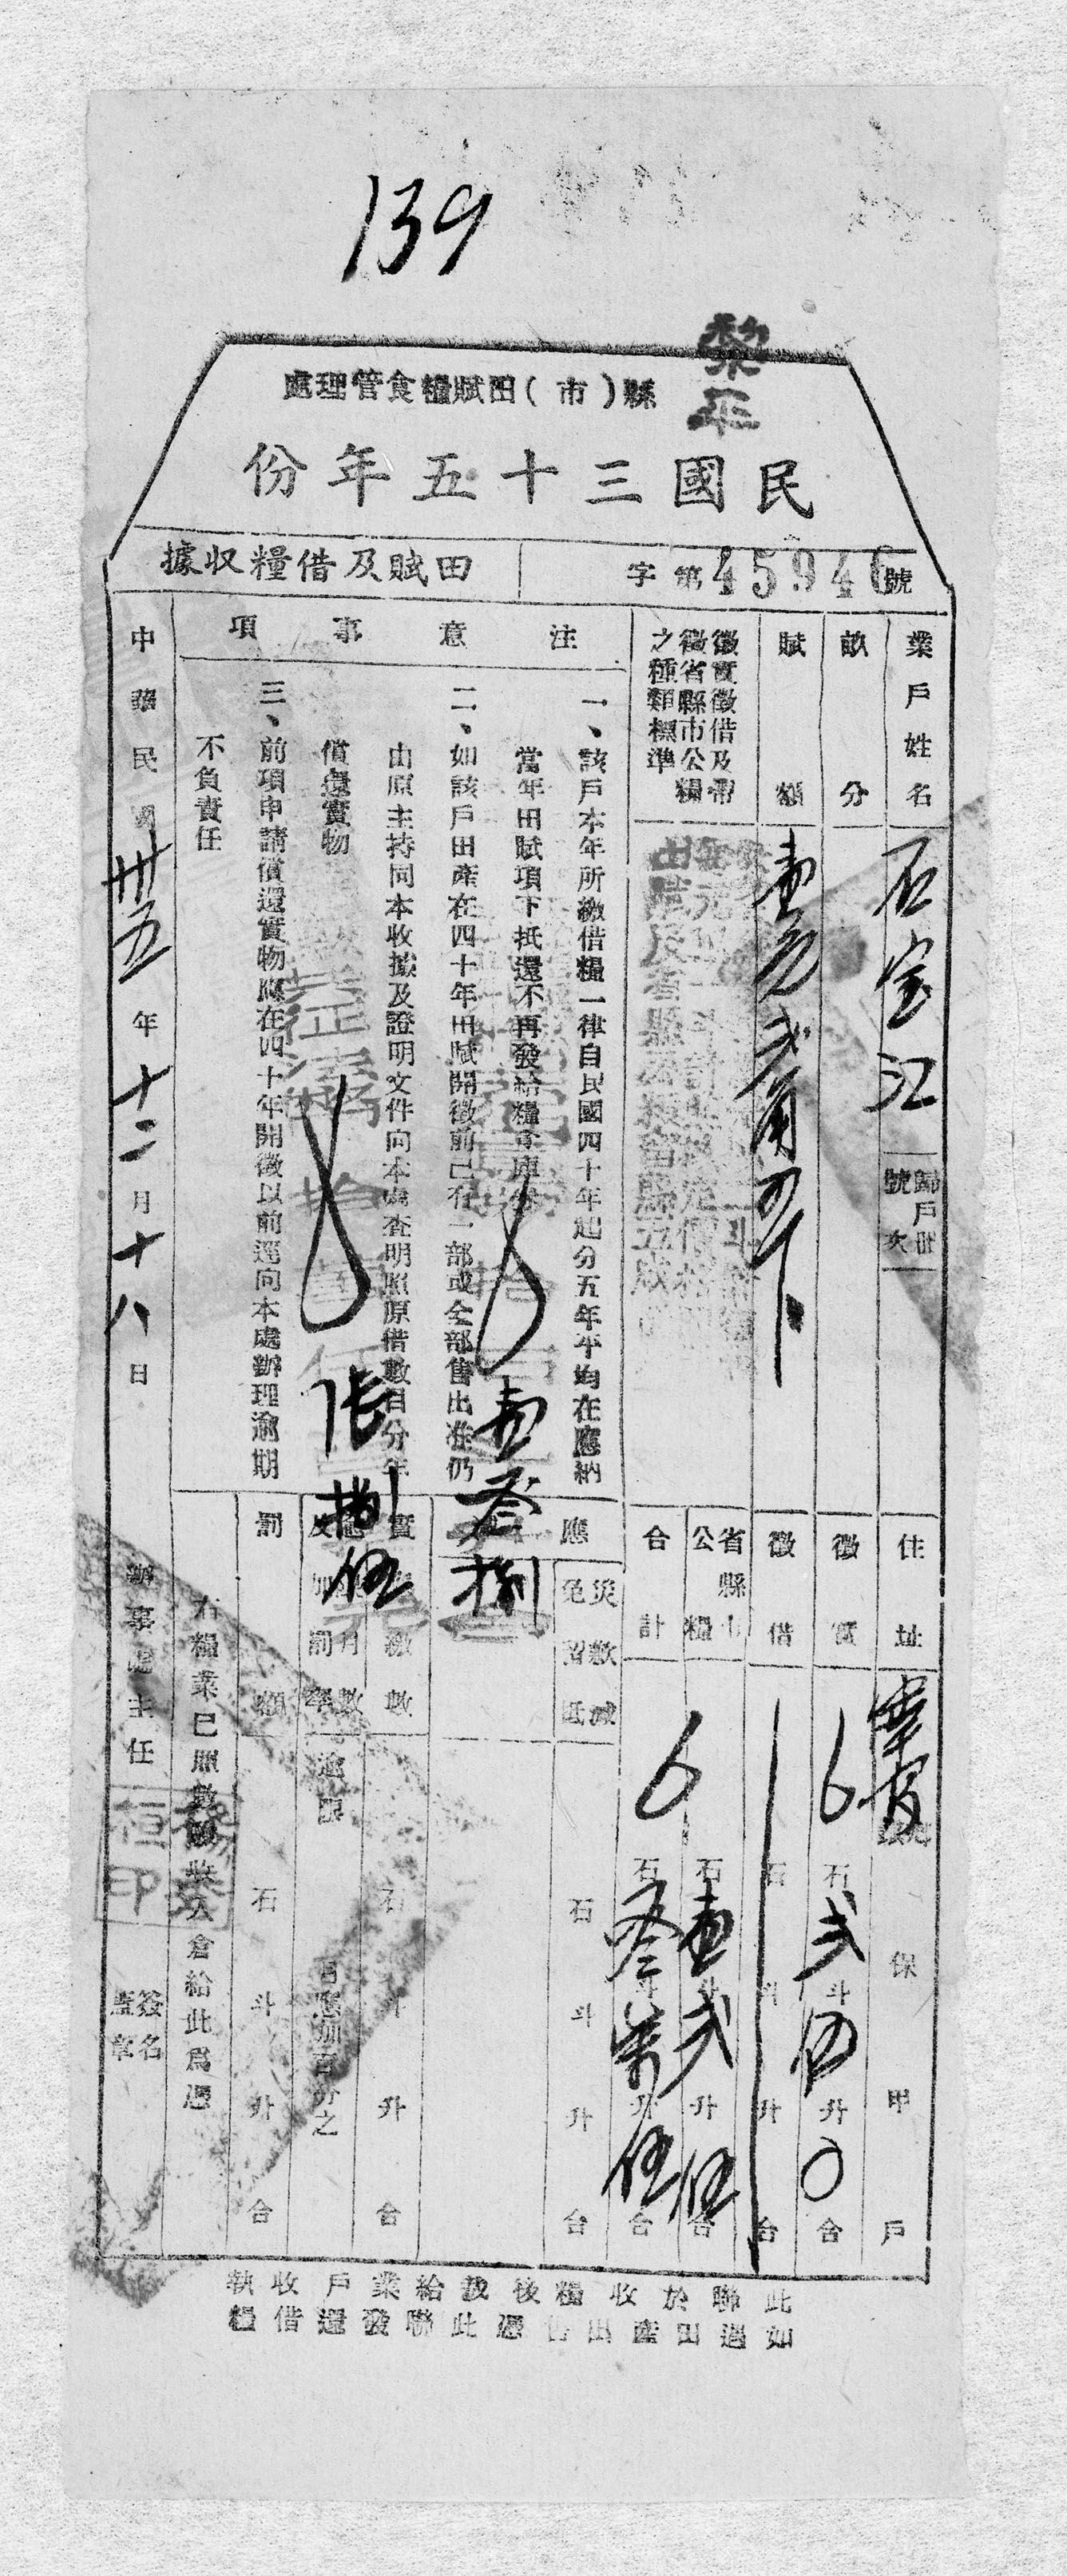 139
黎平
縣（市）田賦糧食管理處
民國三十五年份
字第45946號
田賦及借糧收據
業戶姓名
石宝江
歸戶冊號次
住址
保
甲
戶
畝分
賦額
壹元弍角四卜
徵實徵借及帶徵省縣市公糧之種類標準
徵實
石弍斗伍升〇合
徵借
石斗升合
省縣市公糧
石壹斗弍升伍合
合計
石叁斗柒升伍合
注意事項
一、該戶本年所繳借糧一律自民國四十年起分五年平均在應納
當年田賦項下抵還不再發給糧食庫券
二、如該戶田產在四十年田賦開徵前已有一部或全部售出准仍
由原主持同本收據及證明文件向本處查明照原借數目分年
償還實物
三、前項申請償還實物應在四十年開徵以前逕向本處辦理逾期
不負責任
應
災歉減免
石斗升合
壹叁捌
張捌伍
實繳數
石斗升合
逾限
月應加百分之
罰額
石斗升合
右糧業已照數驗收入倉給此爲憑
中華民國卅五年十二月十八日
辦事處主任
簽名蓋章
此聯於收糧後裁給業戶收執
如遇田產出售憑此聯發還借糧